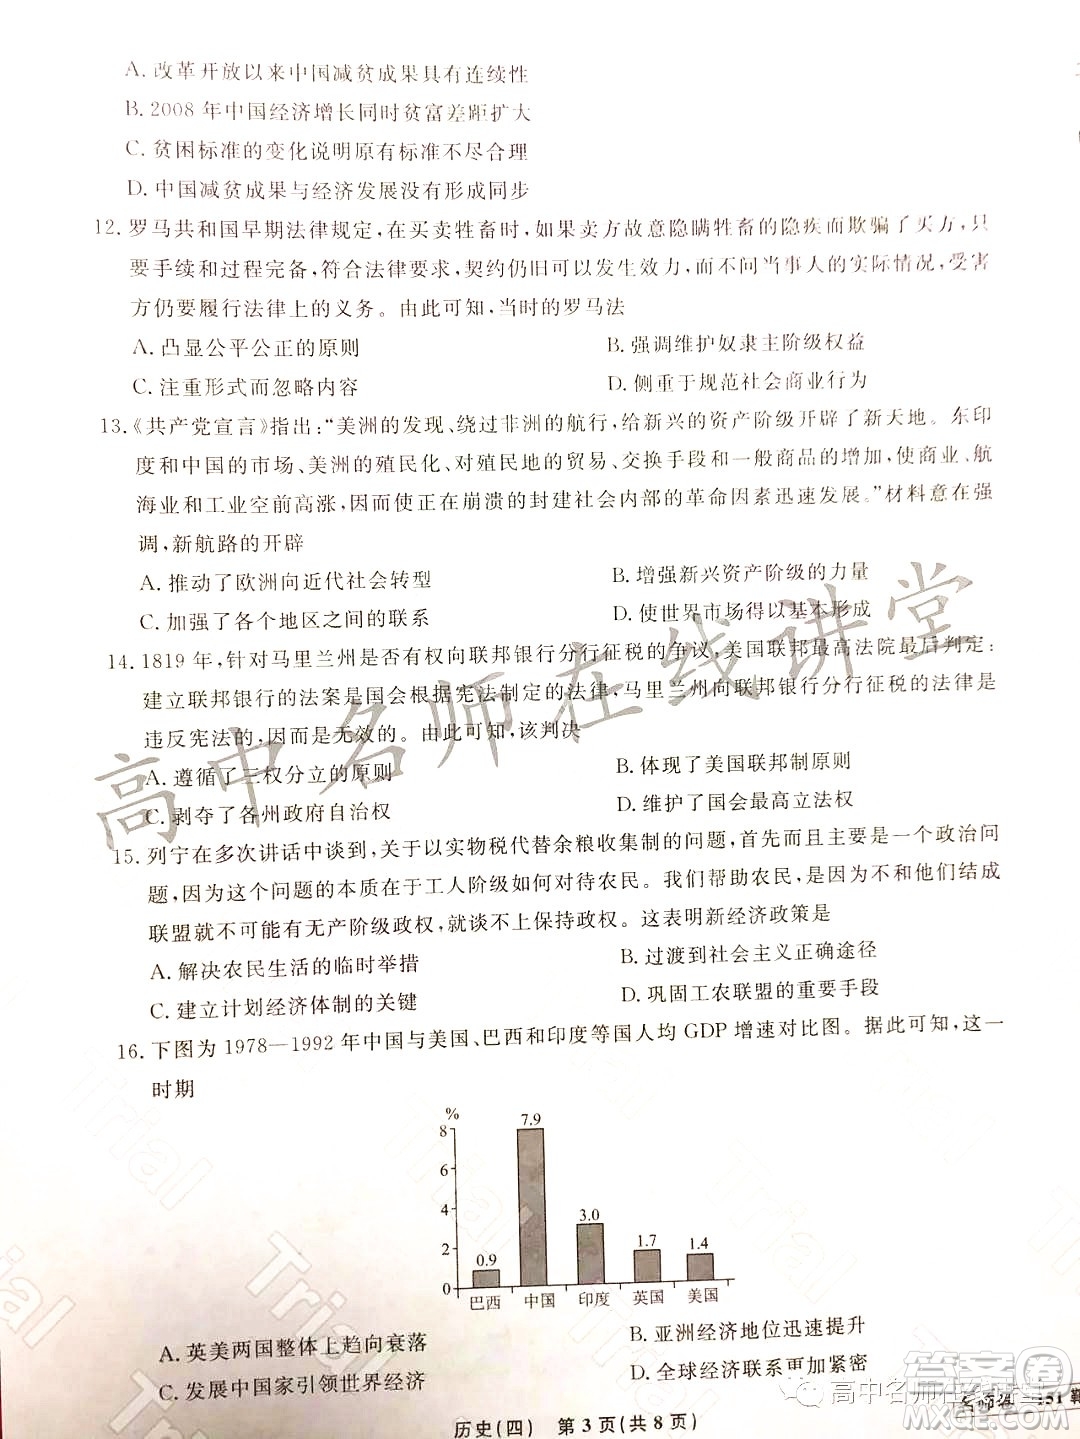 A. 改革开放以来中国减贫成果具有连续性
B. 2008 年中国经济增长同时贫富差距扩大
C. 贫困标准的变化说明原有标准不尽合理
D. 中国减贫成果与经济发展没有形成同步
12. 罗马共和国早期法律规定，在买卖牲畜时，如果卖方故意隐瞒牲畜的隐疾而欺骗了买方，只
要手续和过程完备，符合法律要求，契约仍旧可以发生效力，而不问当事人的实际情况，受害
方仍要履行法律上的义务。由此可知，当时的罗马法
A. 凸显公平公正的原则 B. 强调维护奴隶主阶级权益
C. 注重形式而忽略内容 D. 侧重于规范社会商业行为
13.《共产党宣言》指出：“美洲的发现、绕过非洲的航行，给新兴的资产阶级开辟了新天地。东印
度和中国的市场、美洲的殖民化、对殖民地的贸易、交换手段和一般商品的增加，使商业、航
海业和工业空前高涨，因而使正在崩溃的封建社会内部的革命因素迅速发展。”材料意在强
调，新航路的开辟
A. 推动了欧洲向近代社会转型 B. 增强新兴资产阶级的力量
C. 加强了各个地区之间的联系 D. 使世界市场得以基本形成
14. 1819 年，针对马里兰州是否有权向联邦银行分行征税的争议，美国联邦最高法院最后判定：
建立联邦银行的法案是国会根据宪法制定的法律，马里兰州向联邦银行分行征税的法律是
违反宪法的，因而是无效的。由此可知，该判决
A. 遵循了三权分立的原则 B. 体现了美国联邦制原则
C. 剥夺了各州政府自治权 D. 维护了国会最高立法权
15. 列宁在多次讲话中谈到，关于以实物税代替余粮收集制的问题，首先而且主要是一个政治问
题，因为这个问题的本质在于工人阶级如何对待农民。我们帮助农民，是因为不和他们结成
联盟就不可能有无产阶级政权，就谈不上保持政权。这表明新经济政策是
A. 解决农民生活的临时举措 B. 过渡到社会主义正确途径
C. 建立计划经济体制的关键 D. 巩固工农联盟的重要手段
16. 下图为 1978—1992 年中国与美国、巴西和印度等国人均 GDP 增速对比图。据此可知，这一
时期
%
8
6
4
2
0
0.9 7.9 3.0 1.7 1.4
巴西 中国 印度 英国 美国
A. 英美两国整体上趋向衰落 B. 亚洲经济地位迅速提升
C. 发展中国家引领世界经济 D. 全球经济联系更加紧密
历史(四) 第 3 页(共 8 页)
高中名师在线讲堂
Trial
Trial
Trial
Trial
答案圈
MXQE.COM